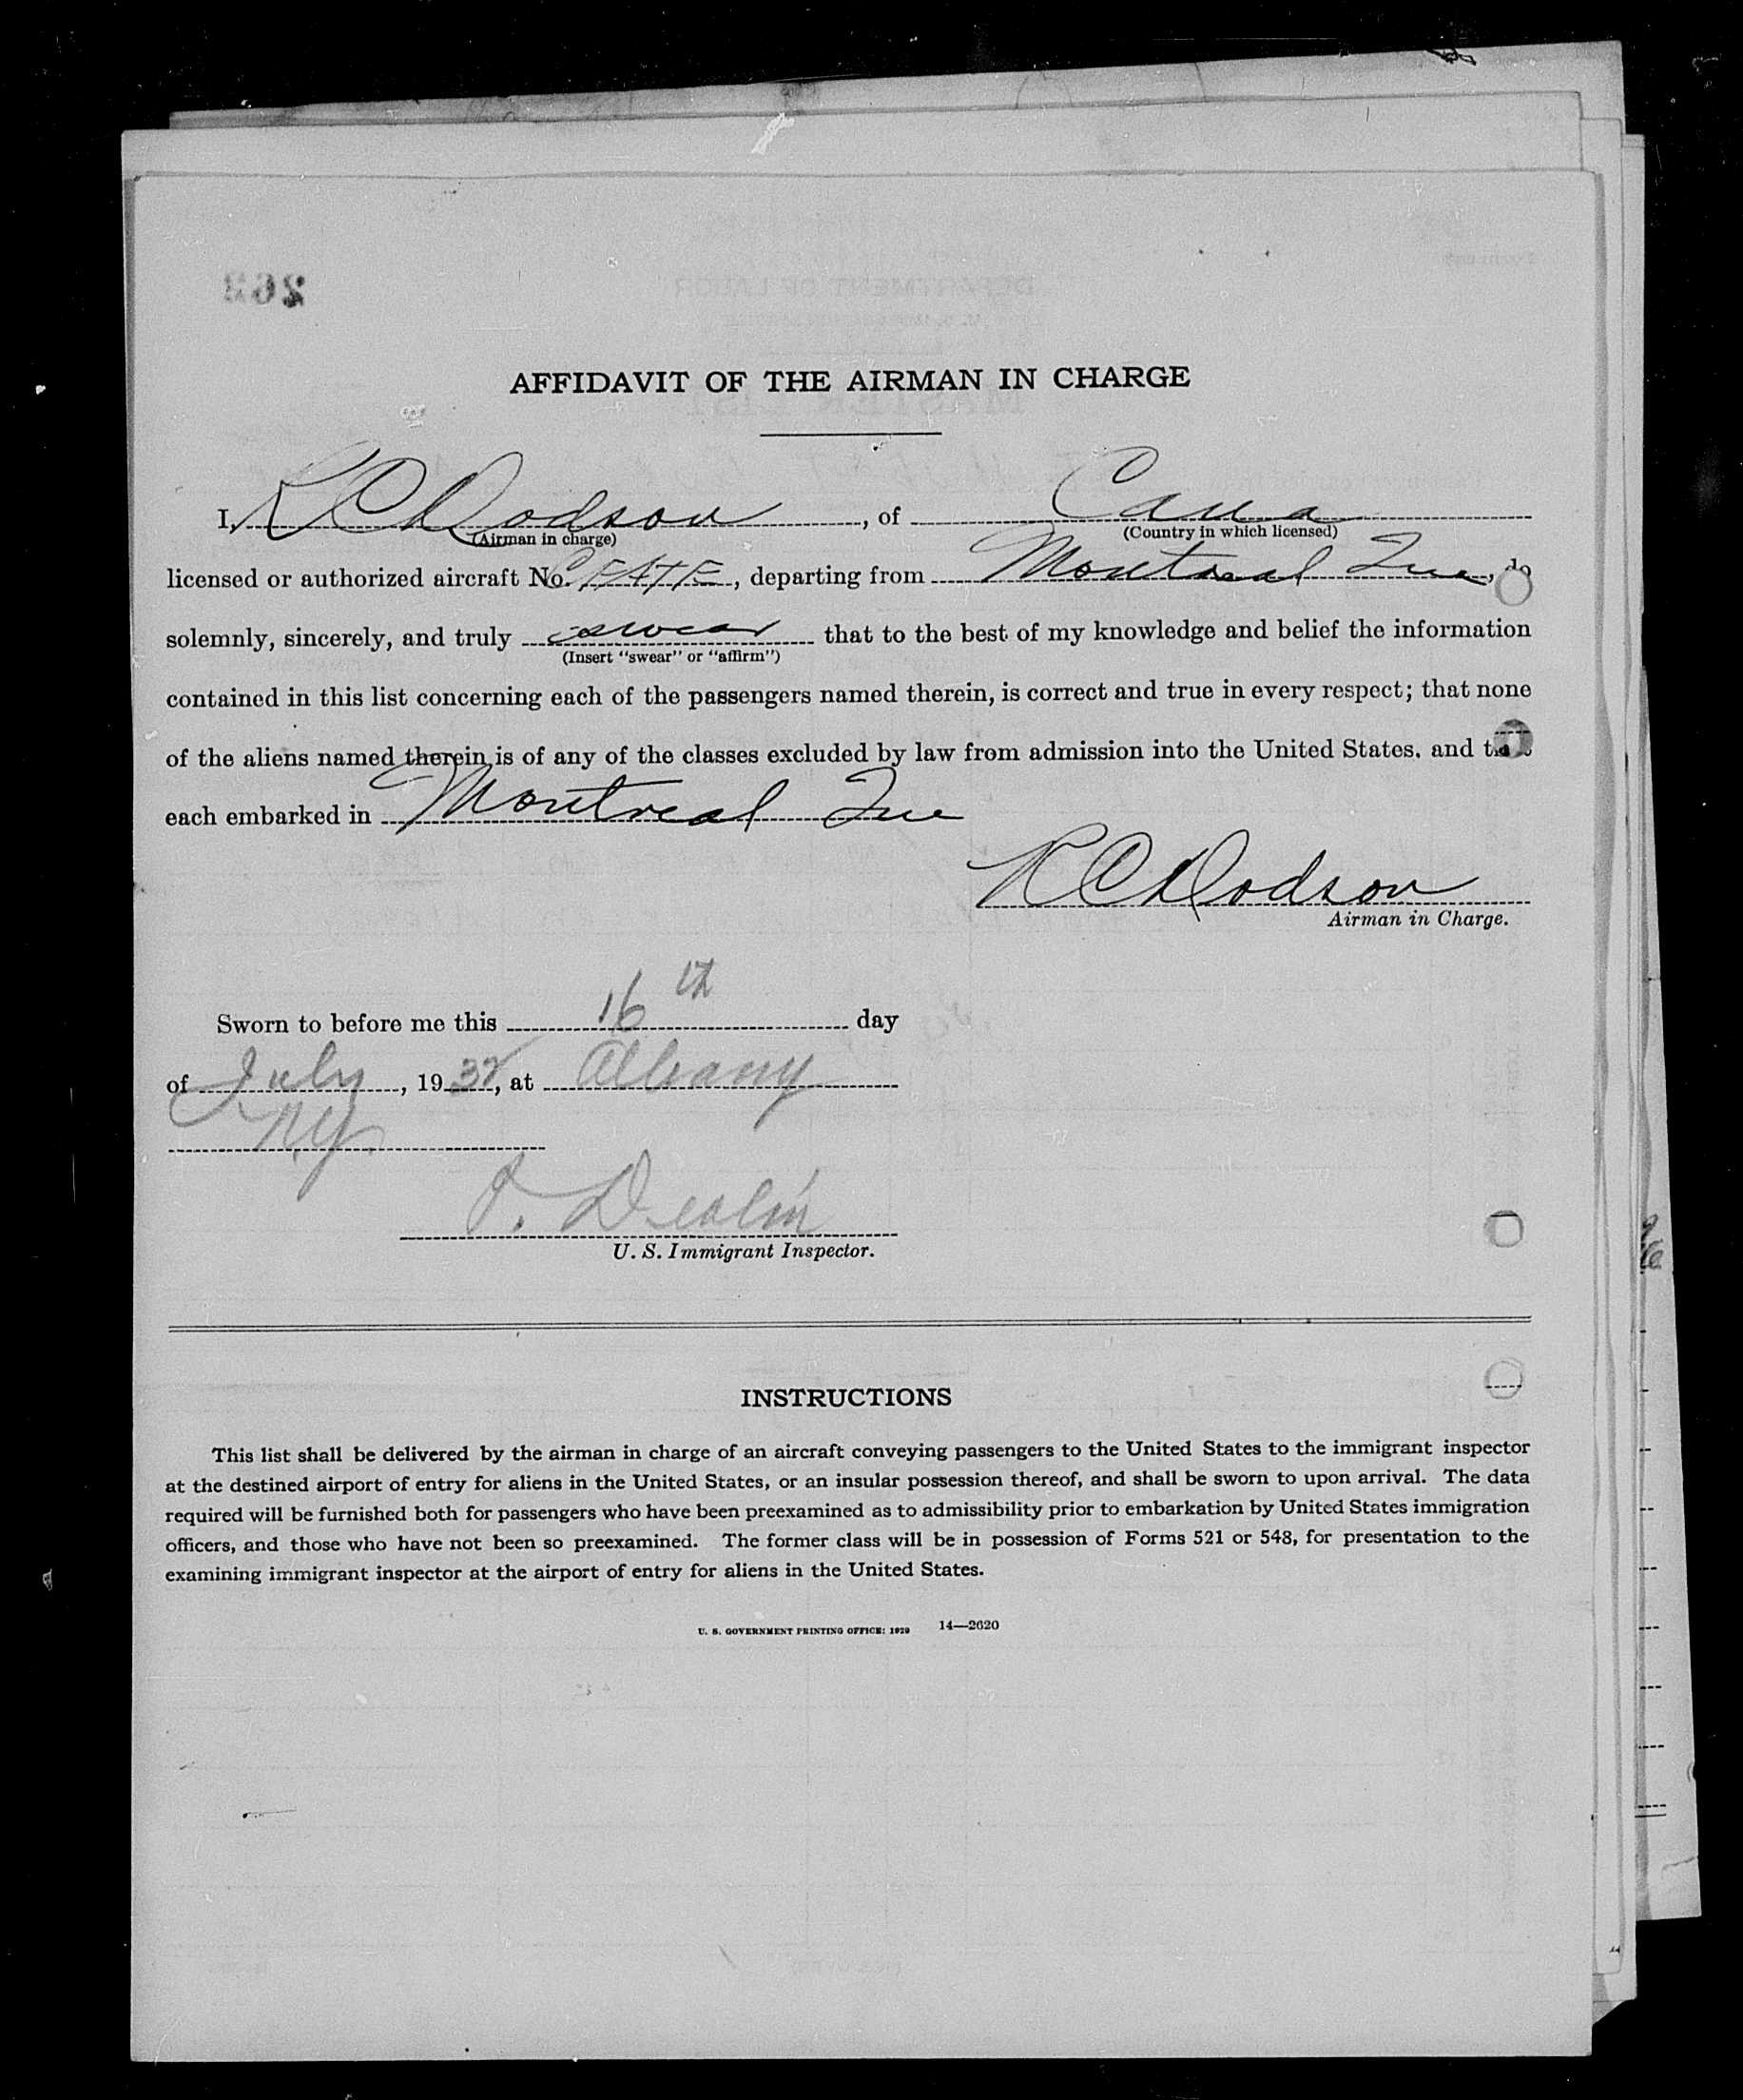 AFFIDAVIT OF THE AIRMAN IN CHARGE
I, R C Dodson, of Cana
(Airman in charge) (Country in which licensed)
licensed or authorized aircraft No. CFATF, departing from Montreal Que, do
solemnly, sincerely, and truly swear that to the best of my knowledge and belief the information
(Insert "swear" or "affirm")
contained in this list concerning each of the passengers named therein, is correct and true in every respect; that none
of the aliens named therein is of any of the classes excluded by law from admission into the United States, and that
each embarked in Montreal Que
R C Dodson
Airman in Charge.
Sworn to before me this 16th day
of July, 1932, at Albany
N.Y.
U. S. Immigrant Inspector.
INSTRUCTIONS
This list shall be delivered by the airman in charge of an aircraft conveying passengers to the United States to the immigrant inspector
at the destined airport of entry for aliens in the United States, or an insular possession thereof, and shall be sworn to upon arrival. The data
required will be furnished both for passengers who have been preexamined as to admissibility prior to embarkation by United States immigration
officers, and those who have not been so preexamined. The former class will be in possession of Forms 521 or 548, for presentation to the
examining immigrant inspector at the airport of entry for aliens in the United States.
U. S. GOVERNMENT PRINTING OFFICE: 1929 14—2620